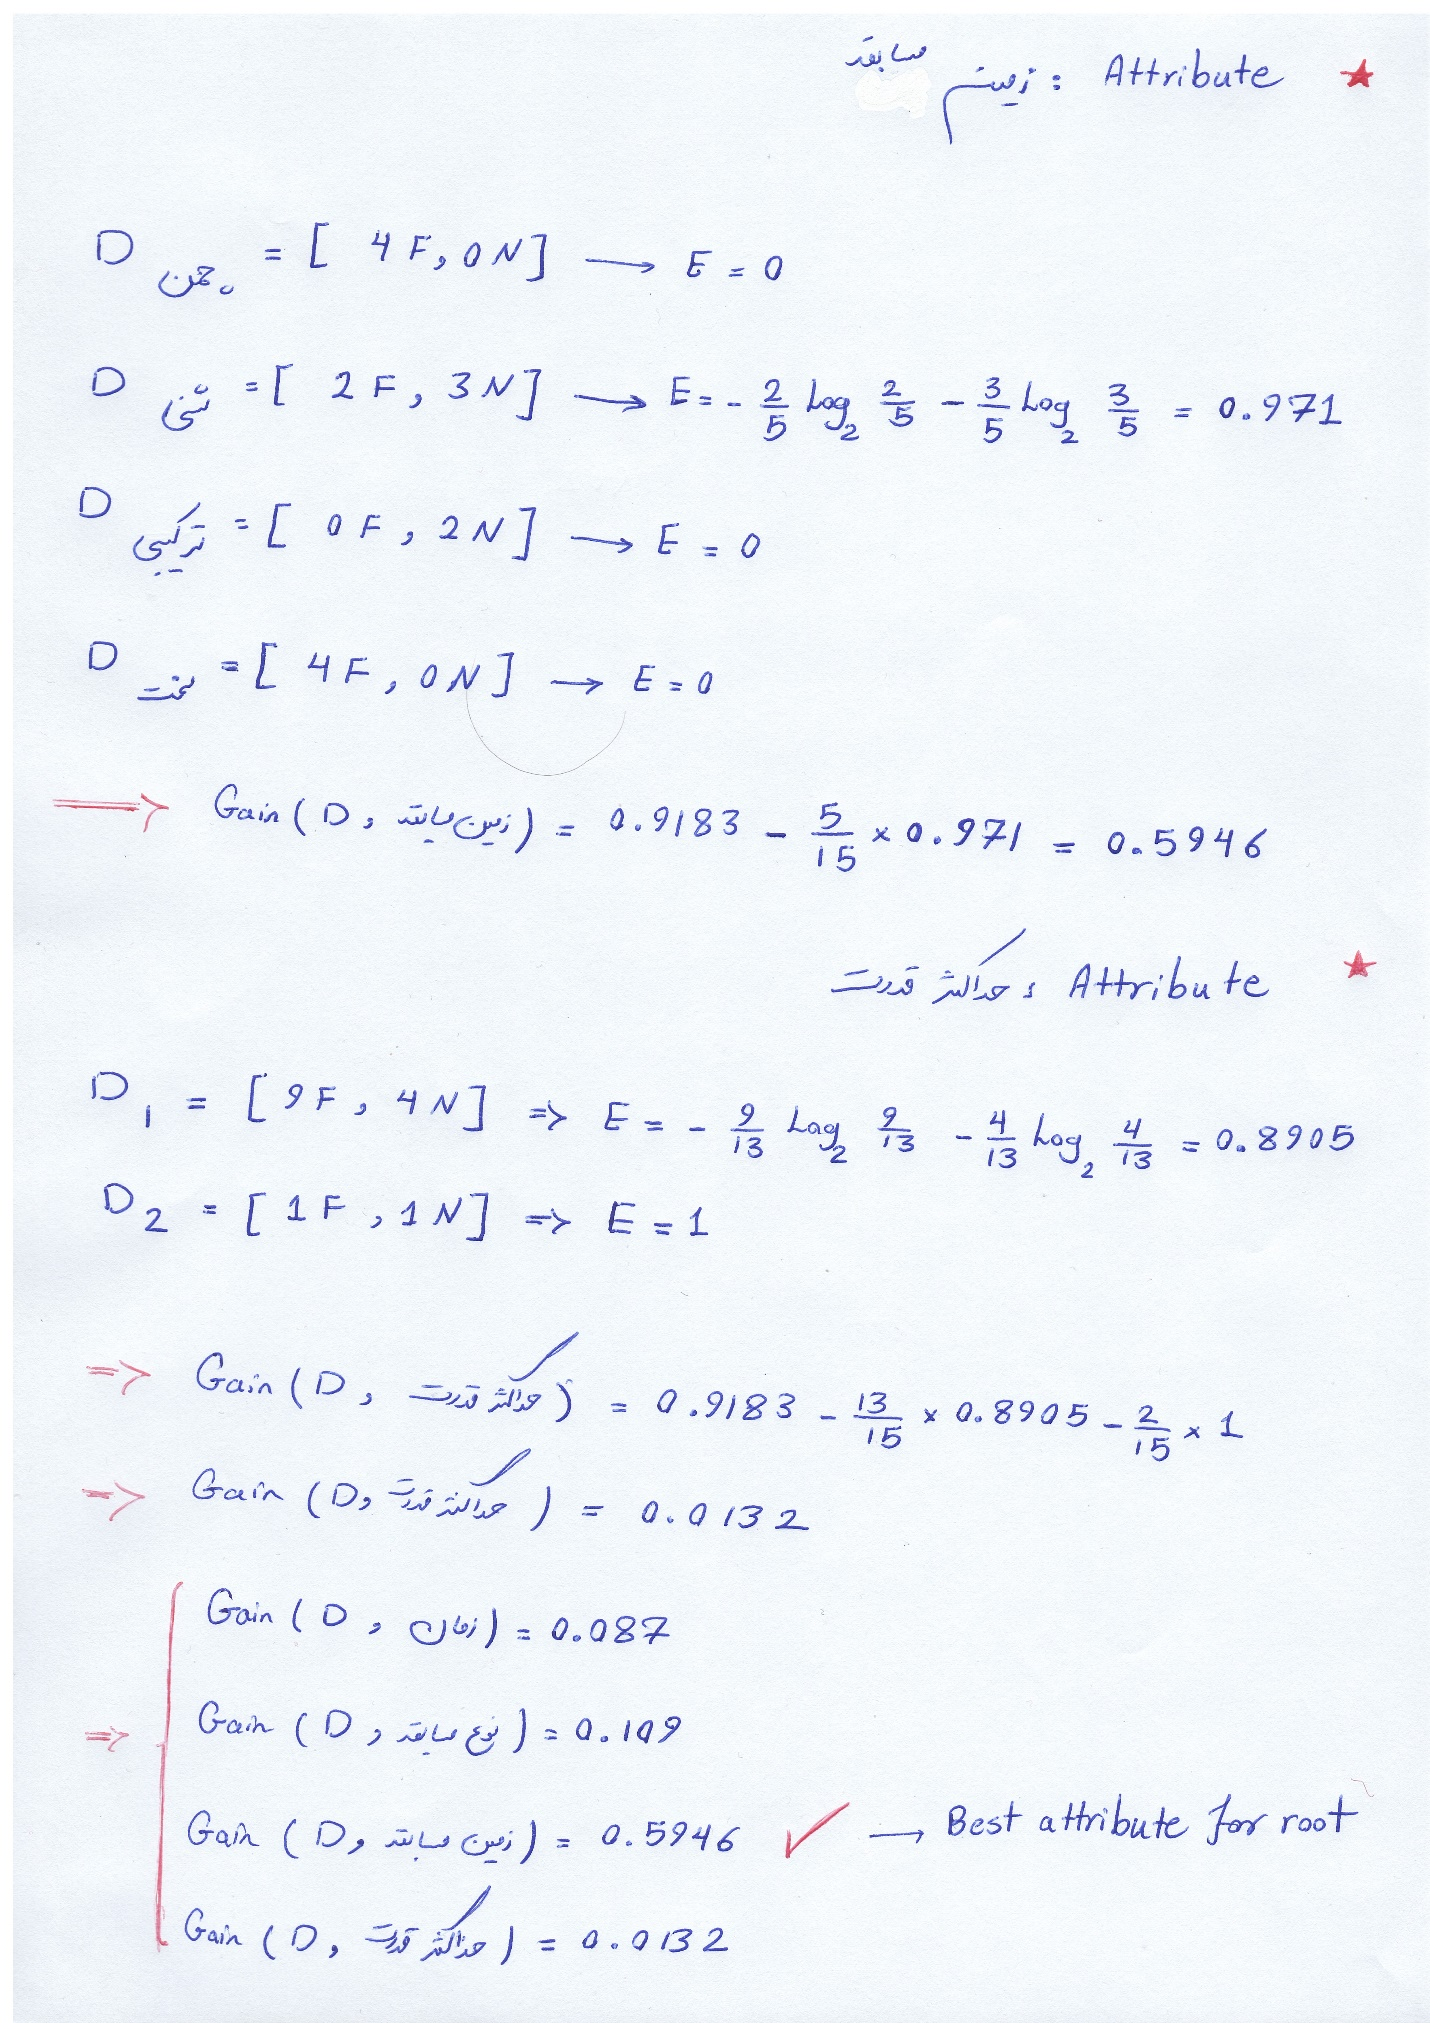 ★ Attribute : زمین مسابقه
D چمن = [ 4 F, 0 N ] → E = 0
D شنی = [ 2 F, 3 N ] → E = - 2/5 Log₂ 2/5 - 3/5 Log₂ 3/5 = 0.971
D ترکیبی = [ 0 F, 2 N ] → E = 0
D سخت = [ 4 F, 0 N ] → E = 0
⟹ Gain ( D, زمین مسابقه ) = 0.9183 - 5/15 × 0.971 = 0.5946
★ Attribute : حداکثر قدرت
D₁ = [ 9 F, 4 N ] ⇒ E = - 9/13 Log₂ 9/13 - 4/13 Log₂ 4/13 = 0.8905
D₂ = [ 1 F, 1 N ] ⇒ E = 1
⇒ Gain ( D, حداکثر قدرت ) = 0.9183 - 13/15 × 0.8905 - 2/15 × 1
⇒ Gain ( D, حداکثر قدرت ) = 0.0132
Gain ( D, زمان ) = 0.087
⇒ Gain ( D, نوع مسابقه ) = 0.109
Gain ( D, زمین مسابقه ) = 0.5946 ✓ → Best attribute for root
Gain ( D, حداکثر قدرت ) = 0.0132